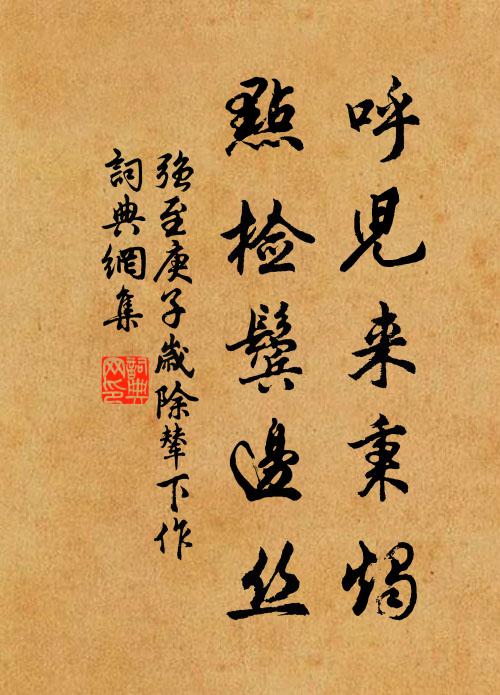 呼児来秉燭
點检鬢邊丝
强至庚子歲除輦下作
詞典網集
詞典
网印